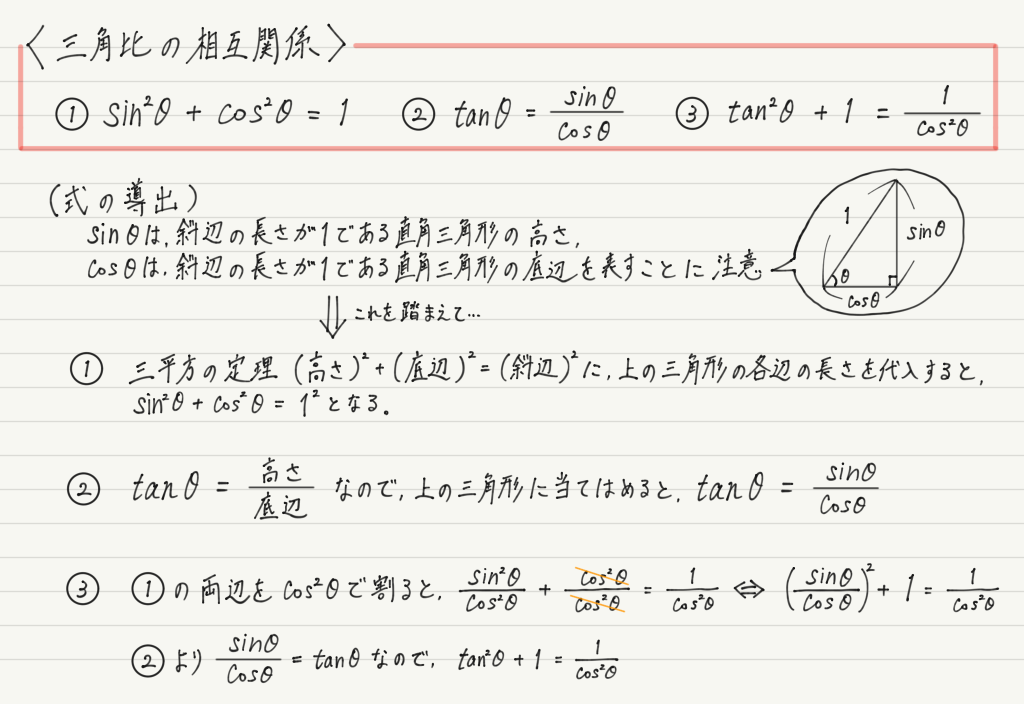 〈三角比の相互関係〉
① sin²θ + cos²θ = 1 ② tanθ = sinθ/cosθ ③ tan²θ + 1 = 1/cos²θ
(式の導出)
sinθは,斜辺の長さが1である直角三角形の高さ,
cosθは,斜辺の長さが1である直角三角形の底辺を表すことに注意.
1
sinθ
θ
cosθ
⇓ これを踏まえて…
① 三平方の定理 (高さ)²+(底辺)²=(斜辺)²に,上の三角形の各辺の長さを代入すると,
sin²θ + cos²θ = 1²となる。
② tanθ = 高さ/底辺 なので,上の三角形に当てはめると, tanθ = sinθ/cosθ
③ ①の両辺をcos²θで割ると, sin²θ/cos²θ + cos²θ/cos²θ = 1/cos²θ ⇔ (sinθ/cosθ)² + 1 = 1/cos²θ
②より sinθ/cosθ = tanθ なので, tan²θ + 1 = 1/cos²θ